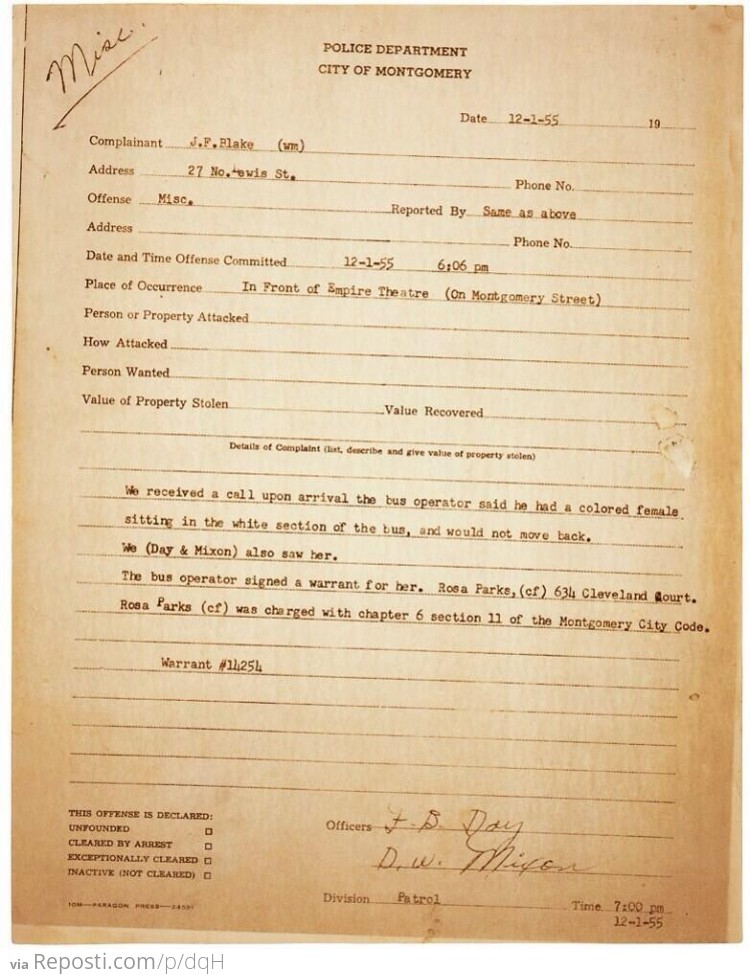 Misc.
POLICE DEPARTMENT
CITY OF MONTGOMERY
Date 12-1-55 19
Complainant J.F.Blake (wm)
Address 27 No.Lewis St. Phone No.
Offense Misc. Reported By Same as above
Address Phone No.
Date and Time Offense Committed 12-1-55 6:06 pm
Place of Occurrence In Front of Empire Theatre (On Montgomery Street)
Person or Property Attacked
How Attacked
Person Wanted
Value of Property Stolen Value Recovered
Details of Complaint (list, describe and give value of property stolen)
We received a call upon arrival the bus operator said he had a colored female
sitting in the white section of the bus, and would not move back.
We (Day & Mixon) also saw her.
The bus operator signed a warrant for her. Rosa Parks, (cf) 634 Cleveland Court.
Rosa Parks (cf) was charged with chapter 6 section 11 of the Montgomery City Code.
Warrant #14254
THIS OFFENSE IS DECLARED:
UNFOUNDED
CLEARED BY ARREST
EXCEPTIONALLY CLEARED
INACTIVE (NOT CLEARED)
Officers F. B. Day
D. W. Mixon
Division Patrol Time 7:00 pm
12-1-55
10M—PARAGON PRESS—24551
via Reposti.com/p/dqH